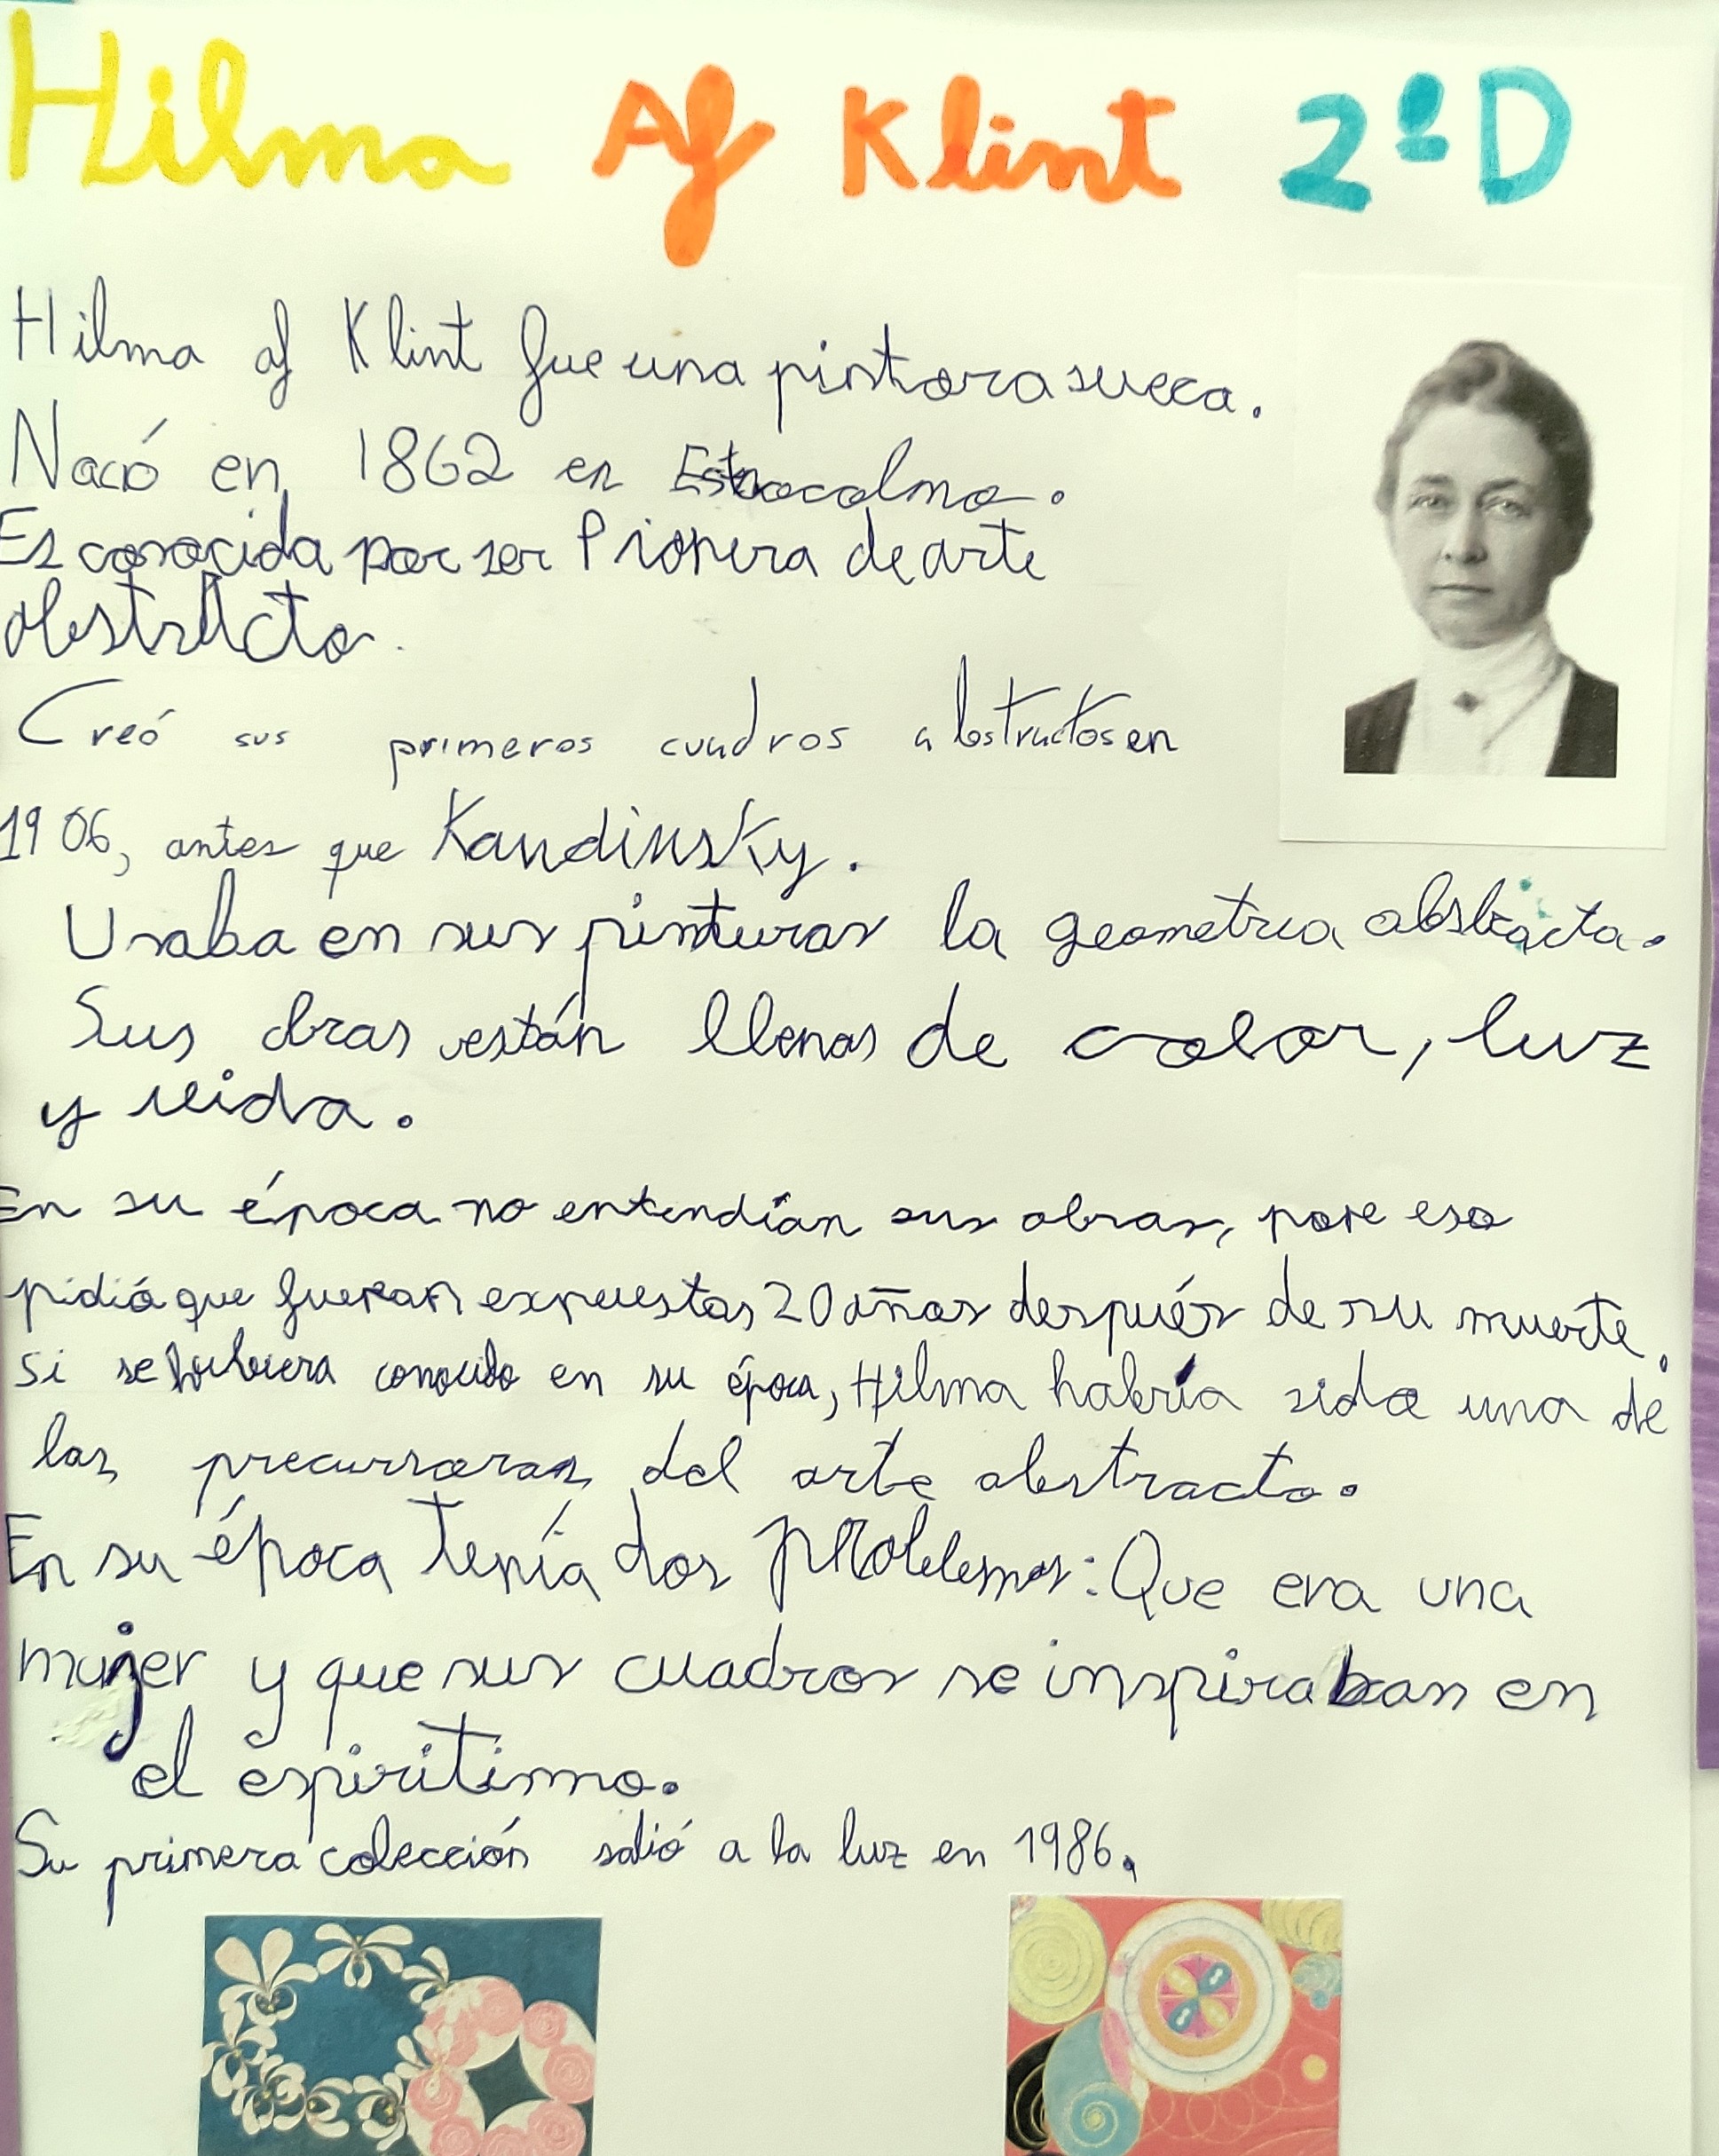 Hilma Af Klint 2ºD
Hilma af Klint fue una pintora sueca.
Nació en 1862 en Estocolmo.
Es conocida por ser Pionera de arte
abstracto.
Creó sus primeros cuadros abstractos en
1906, antes que Kandinsky.
Usaba en sus pinturas la geometria abstracta.
Sus obras están llenas de color, luz
y vida.
En su época no entendían sus obras, por eso
pidió que fueran expuestas 20 años después de su muerte.
Si se hubiera conocido en su época, Hilma habría sido una de
las precursoras del arte abstracto.
En su época tenía dos problemas: Que era una
mujer y que sus cuadros se inspiraban en
el espiritimo.
Su primera colección salió a la luz en 1986.